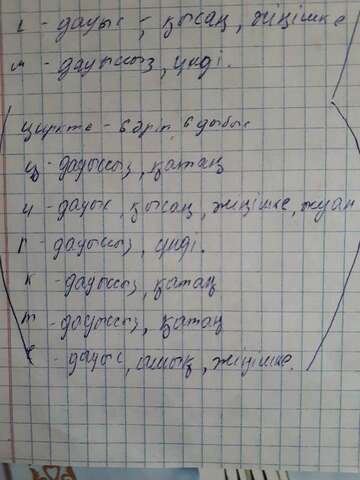 і - дауыс -, қысаң, жіңішке
м - дауыссыз, үнді.
циркте - 6 әріп, 6 дыбыс
ц - дауыссыз, қатаң
и - дауыс, қысаң, жіңішке, жуан
р - дауыссыз, үнді.
к - дауыссыз, қатаң
т - дауыссыз, қатаң
е - дауыс, ашық, жіңішке.